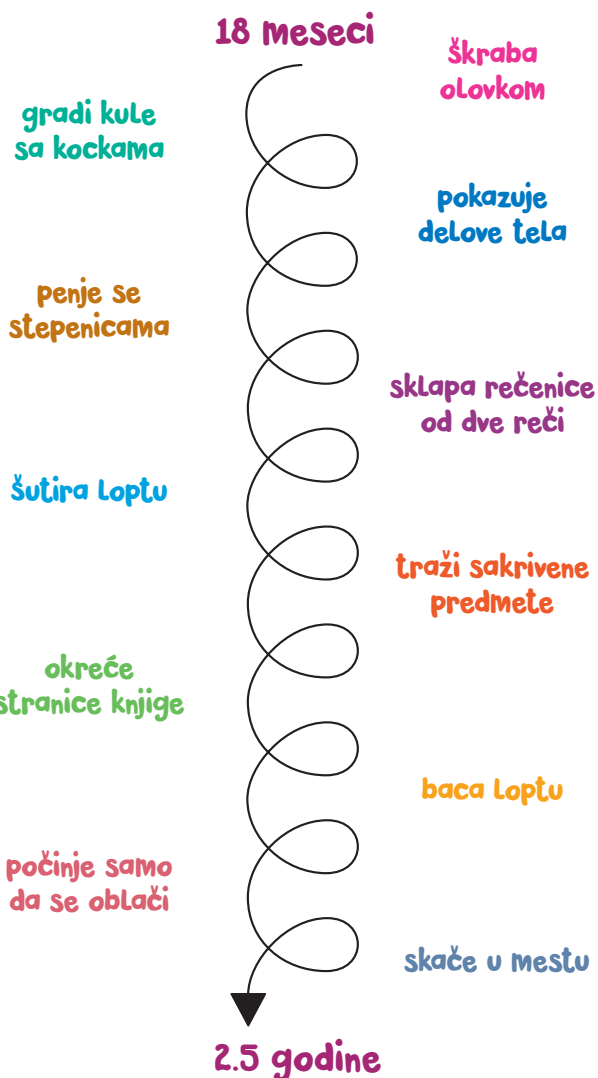 18 meseci
škraba
olovkom
gradi kule
sa kockama
pokazuje
delove tela
penje se
stepenicama
sklapa rečenice
od dve reči
šutira loptu
traži sakrivene
predmete
okreće
stranice knjige
baca loptu
počinje samo
da se oblači
skače u mestu
2.5 godine